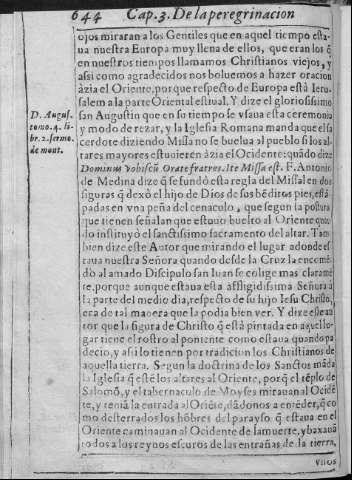 644 Cap. 3. De la peregrinacion
ojos miraran a los Gentiles que en aquel tiempo esta-
ua nuestra Europa muy llena de ellos, que eran los q̃
en nuestros tiempos llamamos Christianos viejos, y
assi como agradecidos nos boluemos a hazer oracion
àzia el Oriente, porque respecto de Europa està Ieru-
salem a la parte Oriental estiual. Y dize el gloriosissimo
san Augustin que en su tiempo se vsaua esta ceremonia
y modo de rezar, y la Iglesia Romana manda que el sa
cerdote diziendo Missa no se buelua al pueblo si los al-
tares mayores estuuieren àzia el Occidente: quãdo dize
Dominus vobiscũ Orate fratres. Ite Missa est. F. Antonio
de Medina dize q̃ se fundò esta regla del Missal en dos
figuras q̃ dexò el hijo de Dios de sus bẽditos pies, estã
padas en vna peña del cenaculo, que segun la postura
que tienen señalan que estauo buelto al Oriente quan
do instituyò el sanctissimo sacramento del altar. Tam
bien dize este Autor que mirando el lugar adonde es
taua nuestra Señora quando desde la Cruz la encomẽ
dò al amado Discipulo san Iuan se colige mas clarame
te, porque aunque estaua esta affligidissima Señora à
la parte del medio dia, respecto de su hijo Iesu Christo,
era de tal manera que la podia bien ver. Y dize este au
tor que la figura de Christo q̃ està pintada en aquel lu-
gar tiene el rostro al poniente como estaua quando pa
decio, y assi lo tienen por tradicion los Christianos de
aquella tierra. Segun la doctrina de los Sanctos mãda
la Iglesia q̃ estẽ los altares al Oriente, porq̃ el tẽplo de
Salomõ, y el tabernaculo de Moyses mirauan al Ocidẽ
te, y teniã la entrada al Oriẽte, dãdonos a entẽder, q̃ co
mo desterrados los hõbres del parayso q̃ estaua en el
Oriente caminauan al Occidente de la muerte, y baxauã
todos a los reynos escuros de las entrañas de la tierra,
vnos
D. Augus.
tomo. 4. li-
br. 2. sermo.
de mont.